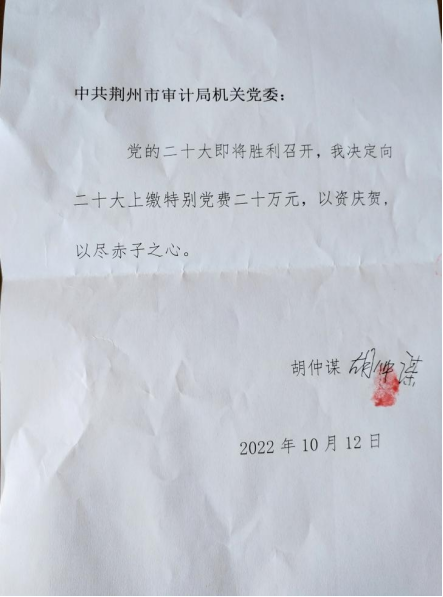 中共荆州市审计局机关党委：
党的二十大即将胜利召开，我决定向
二十大上缴特别党费二十万元，以资庆贺，
以尽赤子之心。
胡仲谋 胡仲谋
2022年10月12日